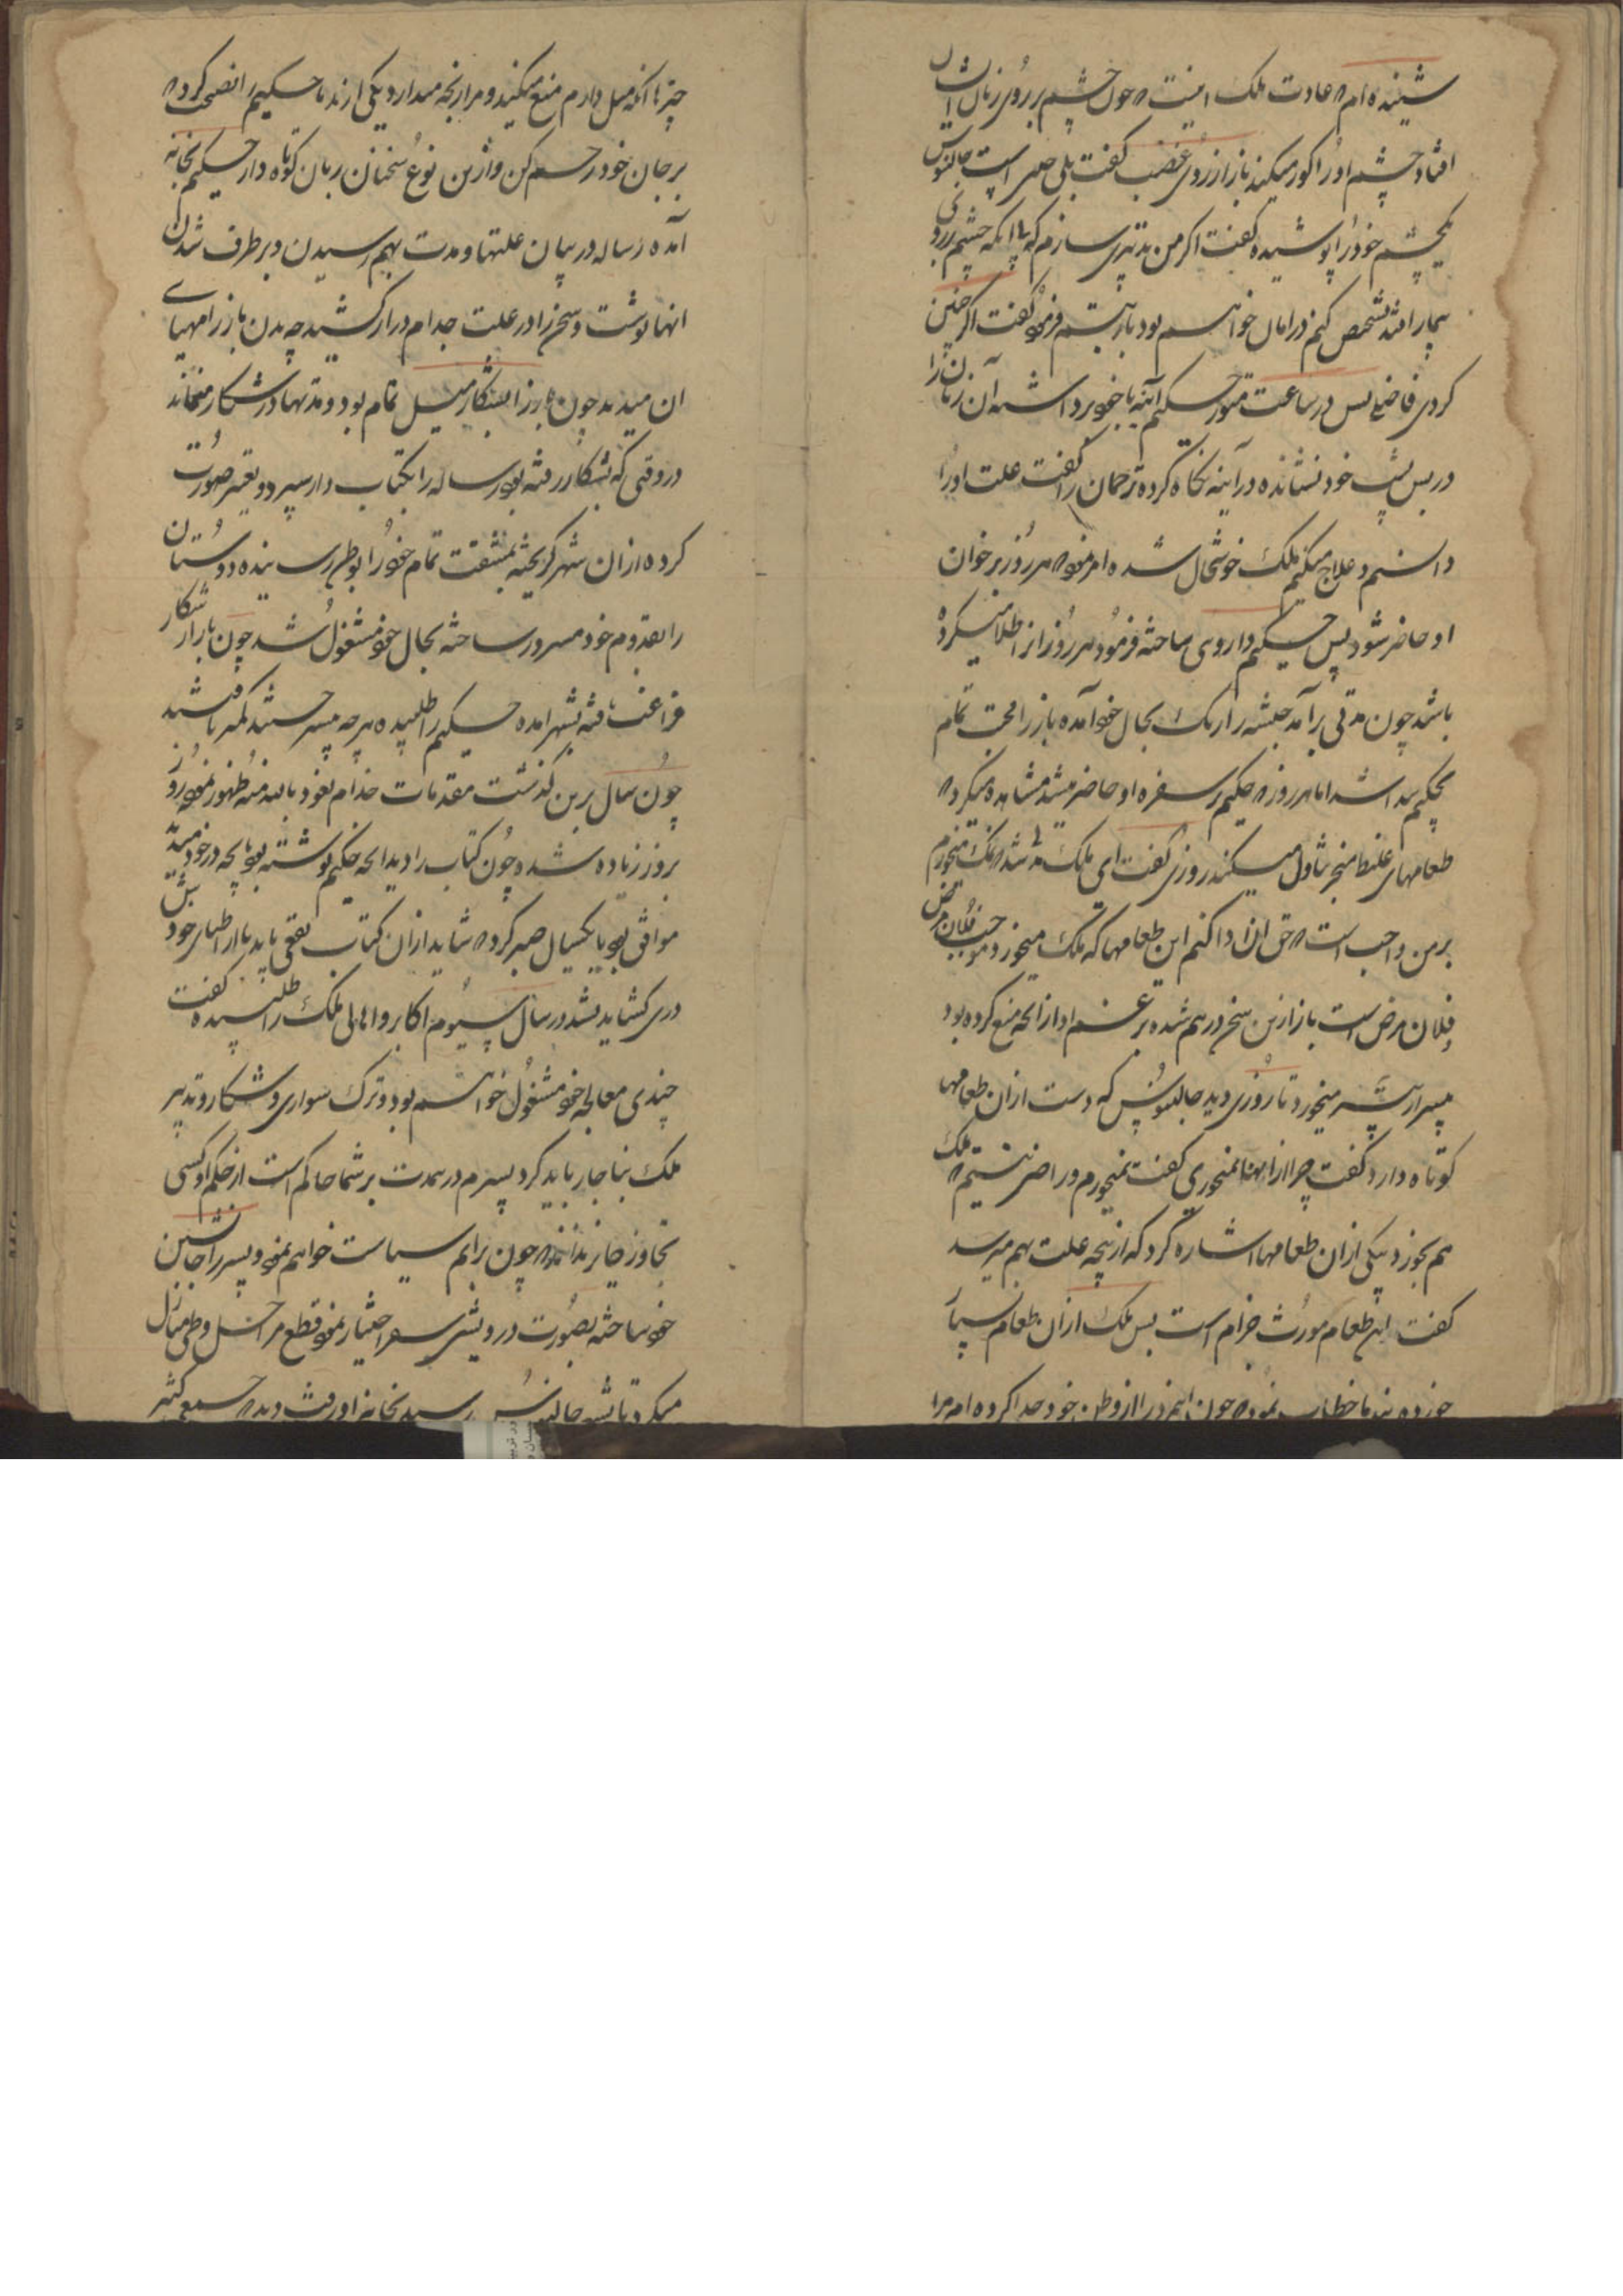 شنیده ام که عادت ملک اینست که چون چشم بر روی زنان ایشان
افتاد چشم او را کور میکند باز از روی غضب گفت بلی چنین است جالینوس
یکچشم خود را پوشیده گفت اگر من تدبیری سازم که با آنکه چشم بر روی
بیمار افتد تشخیص کنم در امان خواهم بود یا نه تبسم فرموده گفت اگر چنین
کردی فاضلی پس در ساعت حکیم آینه با خود برداشته آن زن را
در پس پشت خود نشانده در آینه نگاه کرده ترجمان را گفت علت او را
دانستم و علاج میکنم ملک خوشحال شده امر نمود که هر روز بر خوان
او حاضر شود پس حکیم داروی ساخته فرمود هر روز از آن طلا میکرده
باشد چون مدتی برآمد جبشه را رنگ بحال خود آمده باز را محبت تمام
بحکیم پیدا شد اما هر روز که حکیم بر سفره او حاضر میشد مشاهده میکرد که
طعامهای غلیظ تناول میکند روزی گفت ای ملک نمک میخورم
بر من واجب است که حق آن ادا کنم این طعامها که ملک میخورد موجب فلان مرض
و فلان مرض است باز ازین سخن درهم شده بر غم او از آنچه منع کرده بود
بیشتر میخورد تا روزی دید جالینوس که دست از آن طعامها
کوتاه دارد گفت چرا از اینها نمیخوری گفت نمیخورم و راضی نیستم که ملک
هم بخورد و بیکی از آن طعامها اشاره کرد که ازین چه علت بهم میرسد
گفت این طعام مورث جذام است پس ملک از آن طعام بسیار
خورده بندما خطاب نمود که چون این مرد را از وطن خود جدا کرده ام مرا
چیز با آنکه میل دارم منع میکند و مرا رنجه میدارد یکی از ندما حکیم را نصیحت کرد که
بر جان خود رحم کن و ازین نوع سخنان زبان کوتاه دار حکیم بخانه
آمده رساله در بیان علتها و مدت بهم رسیدن و برطرف شدن
انها نوشت و سخن را در علت جذام دراز کشید چه بدن باز را مهیای
ان میدید چون باز را بشکار میل تمام بود و مدتها در شکار میماند
در وقتی که بشکار رفته بود رساله را بکتاب دار سپرد و تغییر صورت
کرده از ان شهر گریخته بمشقت تمام خود را بوطن رسانیده دوستان
را بقدوم خود مسرور ساخته بحال خود مشغول شد چون باز از شکار
فراغت یافته بشهر آمده حکیم را طلبیده هرچه بیشتر جستند کمتر یافتند
چون سال برین گذشت مقدمات جذام نعوذ بالله منه ظهور نمود روز
بروز زیاده شده چون کتاب را دید آنچه حکیم نوشته بود با آنچه در خود میدید
موافق بود تا یکسال صبر کرد که شاید از آن کتاب نفعی یابد یا از اطبای خود پیش
دری گشاید نشد در سال سیوم اکابر و اهالی ملک را طلبیده گفت
چندی معالجه خود مشغول خواهم بود و ترک سواری و شکار و تدبیر
ملک بناچار باید کرد پسرم درینمدت بر شما حاکم است از حکم او کسی
تجاوز جایز نداند که چون برایم سیاست خواهم نمود و پسر را جانشین
خود ساخته بصورت درویشی سفر اختیار نمود قطع مراحل و طی منازل
میکرد تا بشهر جالینوس رسید بخانه او رفت دید که جمع کثیر